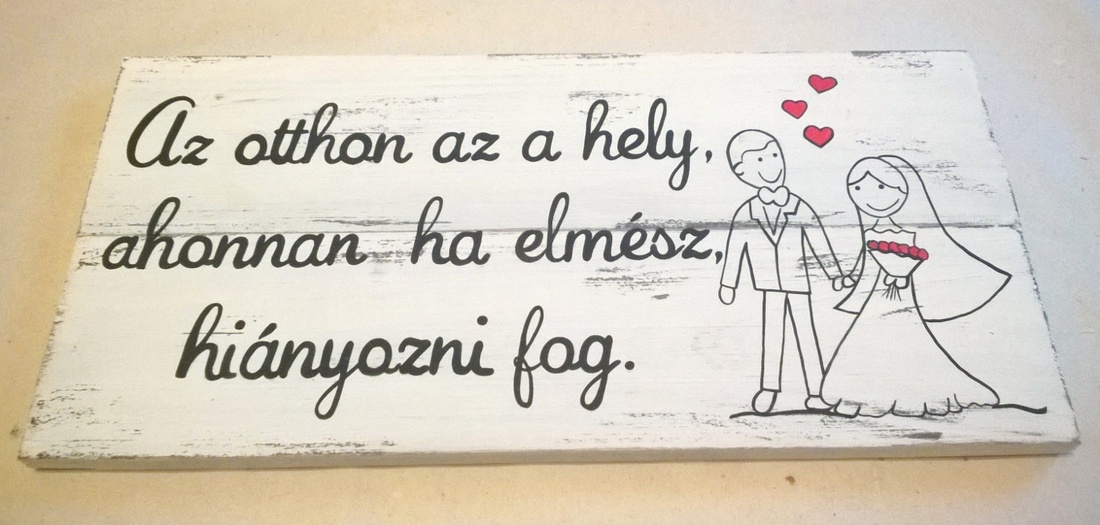 Az otthon az a hely,
ahonnan ha elmész,
hiányozni fog.